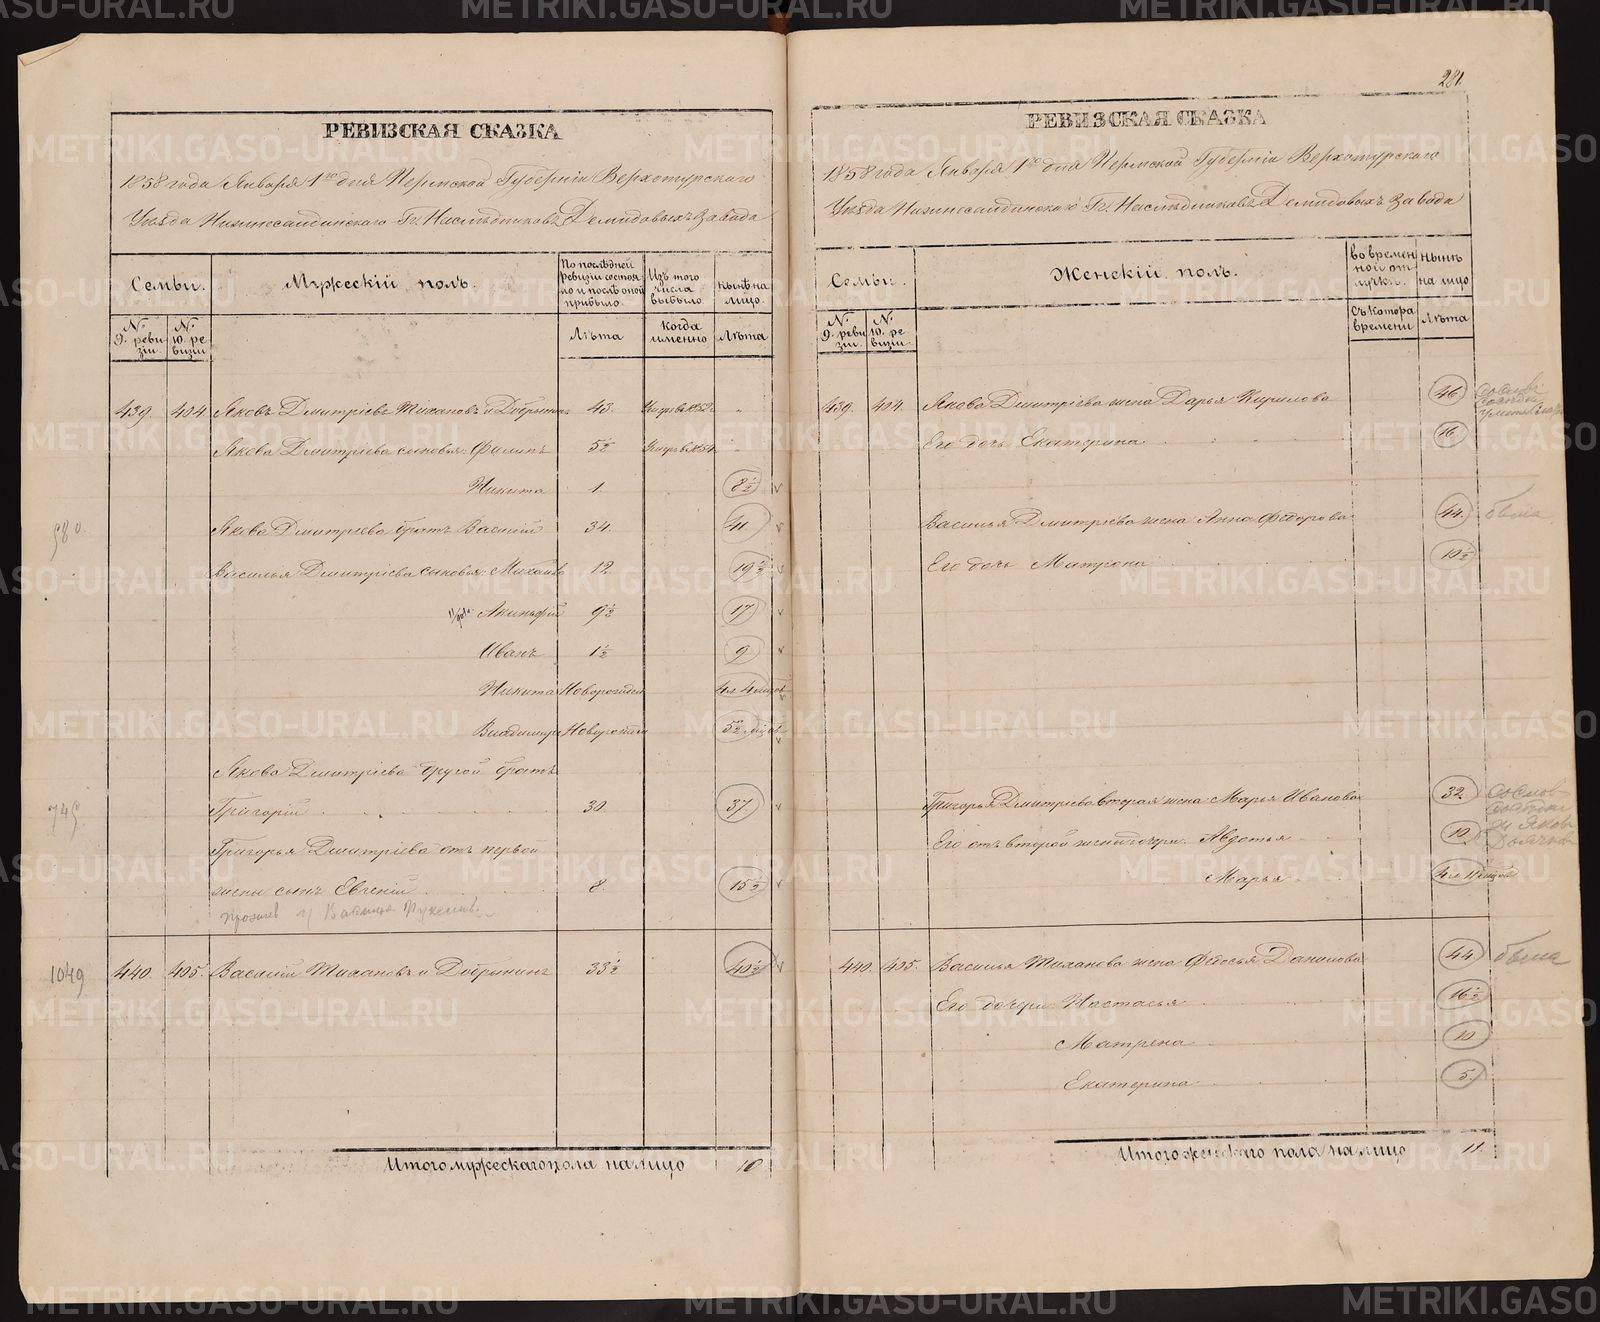 281.
РЕВИЗСКАЯ СКАЗКА
1858 года Января 1го дня Пермской Губерніи Верхотурскаго
Уѣзда Нижнесалдинскаго Гг. Наслѣдниковъ Демидовыхъ завода
Семьи.
Мужескій полъ.
По послѣдней ревизіи состояло и послѣ оной прибыло
Изъ того числа выбыло
нынѣ на лицо.
№ 9. ревизіи
№ 10. ревизіи
Лѣта
когда именно
Лѣта
439. 404. Яковъ Дмитріевъ Тихановъ и Добрынинъ 43. „
Якова Дмитріева сыновья: Филипъ 5½
Никита 1. 8½
580.
Якова Дмитріева братъ Василій 34. 41
Василья Дмитріева сыновья: Михайло 12 19½
Акинфій 9½ 17
Иванъ 1½ 9
Никита Новорожден
Владимиръ Новорожден
Якова Дмитріева другой братъ
745
Григорій 30 37
Григорья Дмитріева отъ первой
жены сынъ Евгеній 8 15½
у
1049 440. 405. Василій Тихановъ и Добрынинъ 33½ 40½
Итого мужескаго пола на лицо 10
РЕВИЗСКАЯ СКАЗКА
1858 года Января 1го дня Пермской Губерніи Верхотурскаго
Уѣзда Нижнесалдинскаго Гг. Наслѣдниковъ Демидовыхъ завода
Семьи.
Женскій полъ.
во временной отлучкѣ.
нынѣ на лицо
№ 9. ревизіи
№ 10. ревизіи
Съ котора времени
Лѣта
439. 404. Якова Дмитріева жена Дарья Кирилова 46
Его дочь Екатерина 16
Василья Дмитріева жена Анна Федорова 44.
Его дочь Матрона
Григорья Дмитріева вторая жена: Марья Иванова 32
Его отъ второй жены дочери: Авдотья 10
Марья
440. 405. Василья Тиханова жена Федосья Данилова 44
Его дочери: Настасья 16½
Матрена 10
Екатерина 5.
Итого женскаго пола на лицо 11.
METRIKI.GASO-URAL.RU